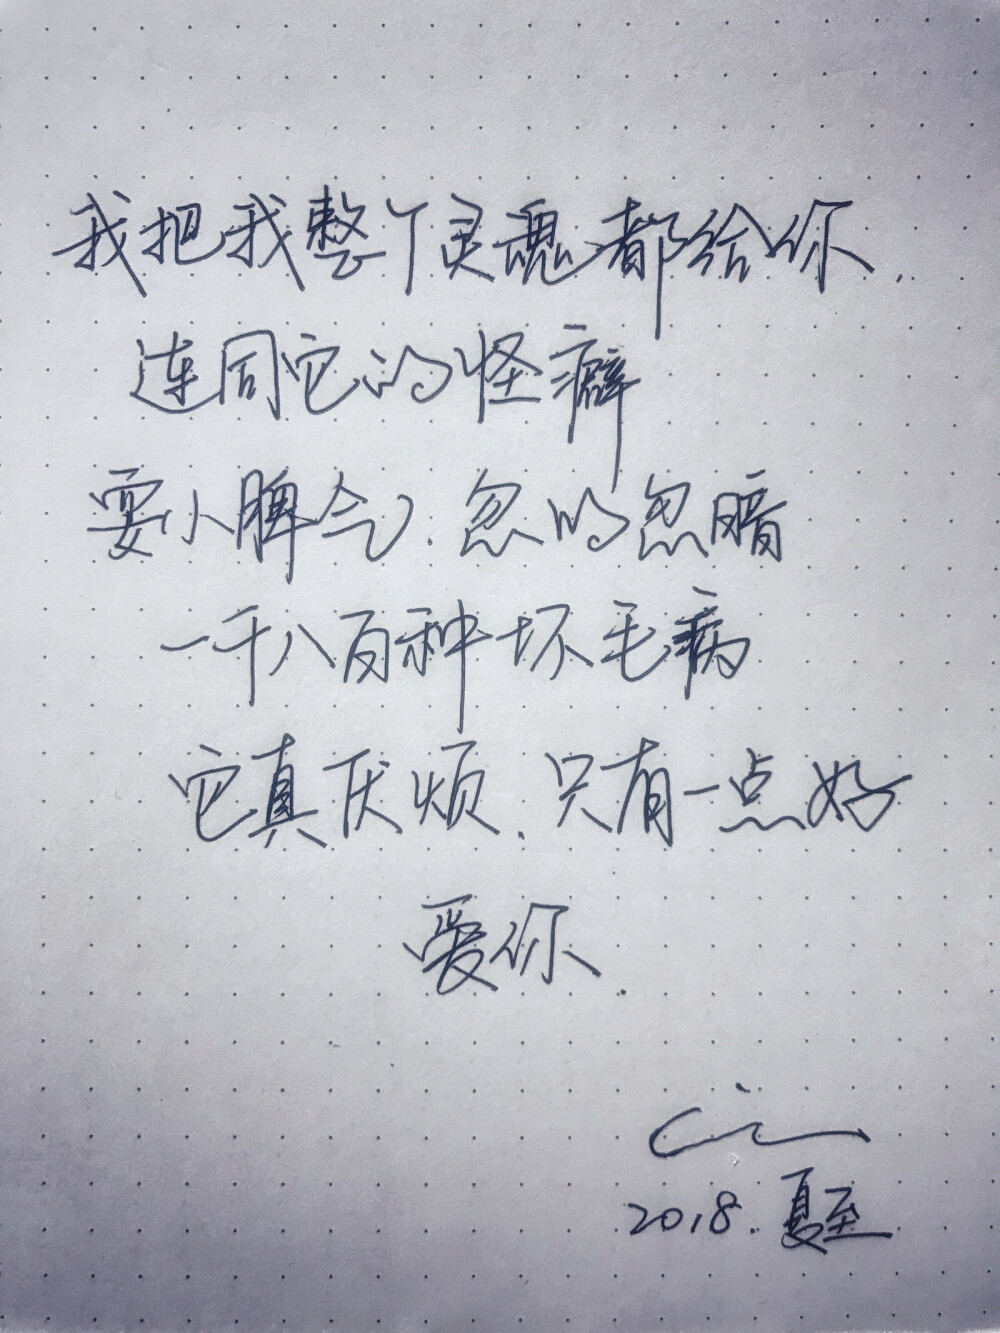 我把我整个灵魂都给你.
连同它的怪癖
耍小脾气.忽明忽暗
一千八百种坏毛病
它真厌烦.只有一点好
爱你.
2018.夏至